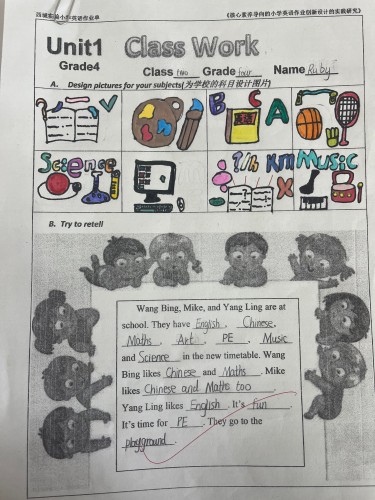 西城实验小学英语作业单 《核心素养导向的小学英语作业创新设计的实践研究》
Unit1 Class Work
Grade4 Class two Grade four Name Ruby
A. Design pictures for your subjects(为学校的科目设计图片)
B C A
Science Music
B. Try to retell
Wang Bing, Mike, and Yang Ling are at
school. They have English, Chinese,
Maths, Art, PE, Music
and Science in the new timetable. Wang
Bing likes Chinese and Maths. Mike
likes Chinese and Maths too
Yang Ling likes English. It's fun.
It's time for PE. They go to the
playground.